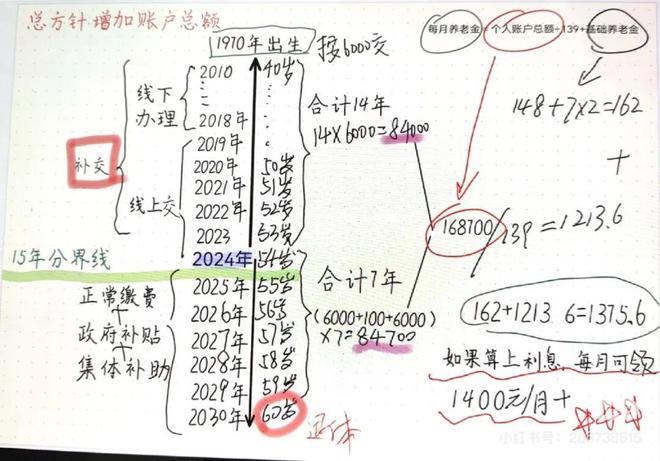 总方针:增加账户总额
1970年出生
按6000交
每月养老金=个人账户总额÷139+基础养老金
补交
线下
办理
线上交
2010 40岁
2018年
2019年
2020年 50岁
2021年 51岁
2022年 52岁
2023 53岁
2024年 54岁
2025年 55岁
2026年 56岁
2027年 57岁
2028年 58岁
2029年 59岁
2030年 60岁
退休
15年分界线
正常缴费
+
政府补贴
+
集体补助
合计14年
14×6000=84000
合计7年
(6000+100+6000)
×7=84700
148+7×2=162
+
168700/139=1213.6
162+1213 6=1375.6
如果算上利息,每月可领
1400元/月+
小红书号: